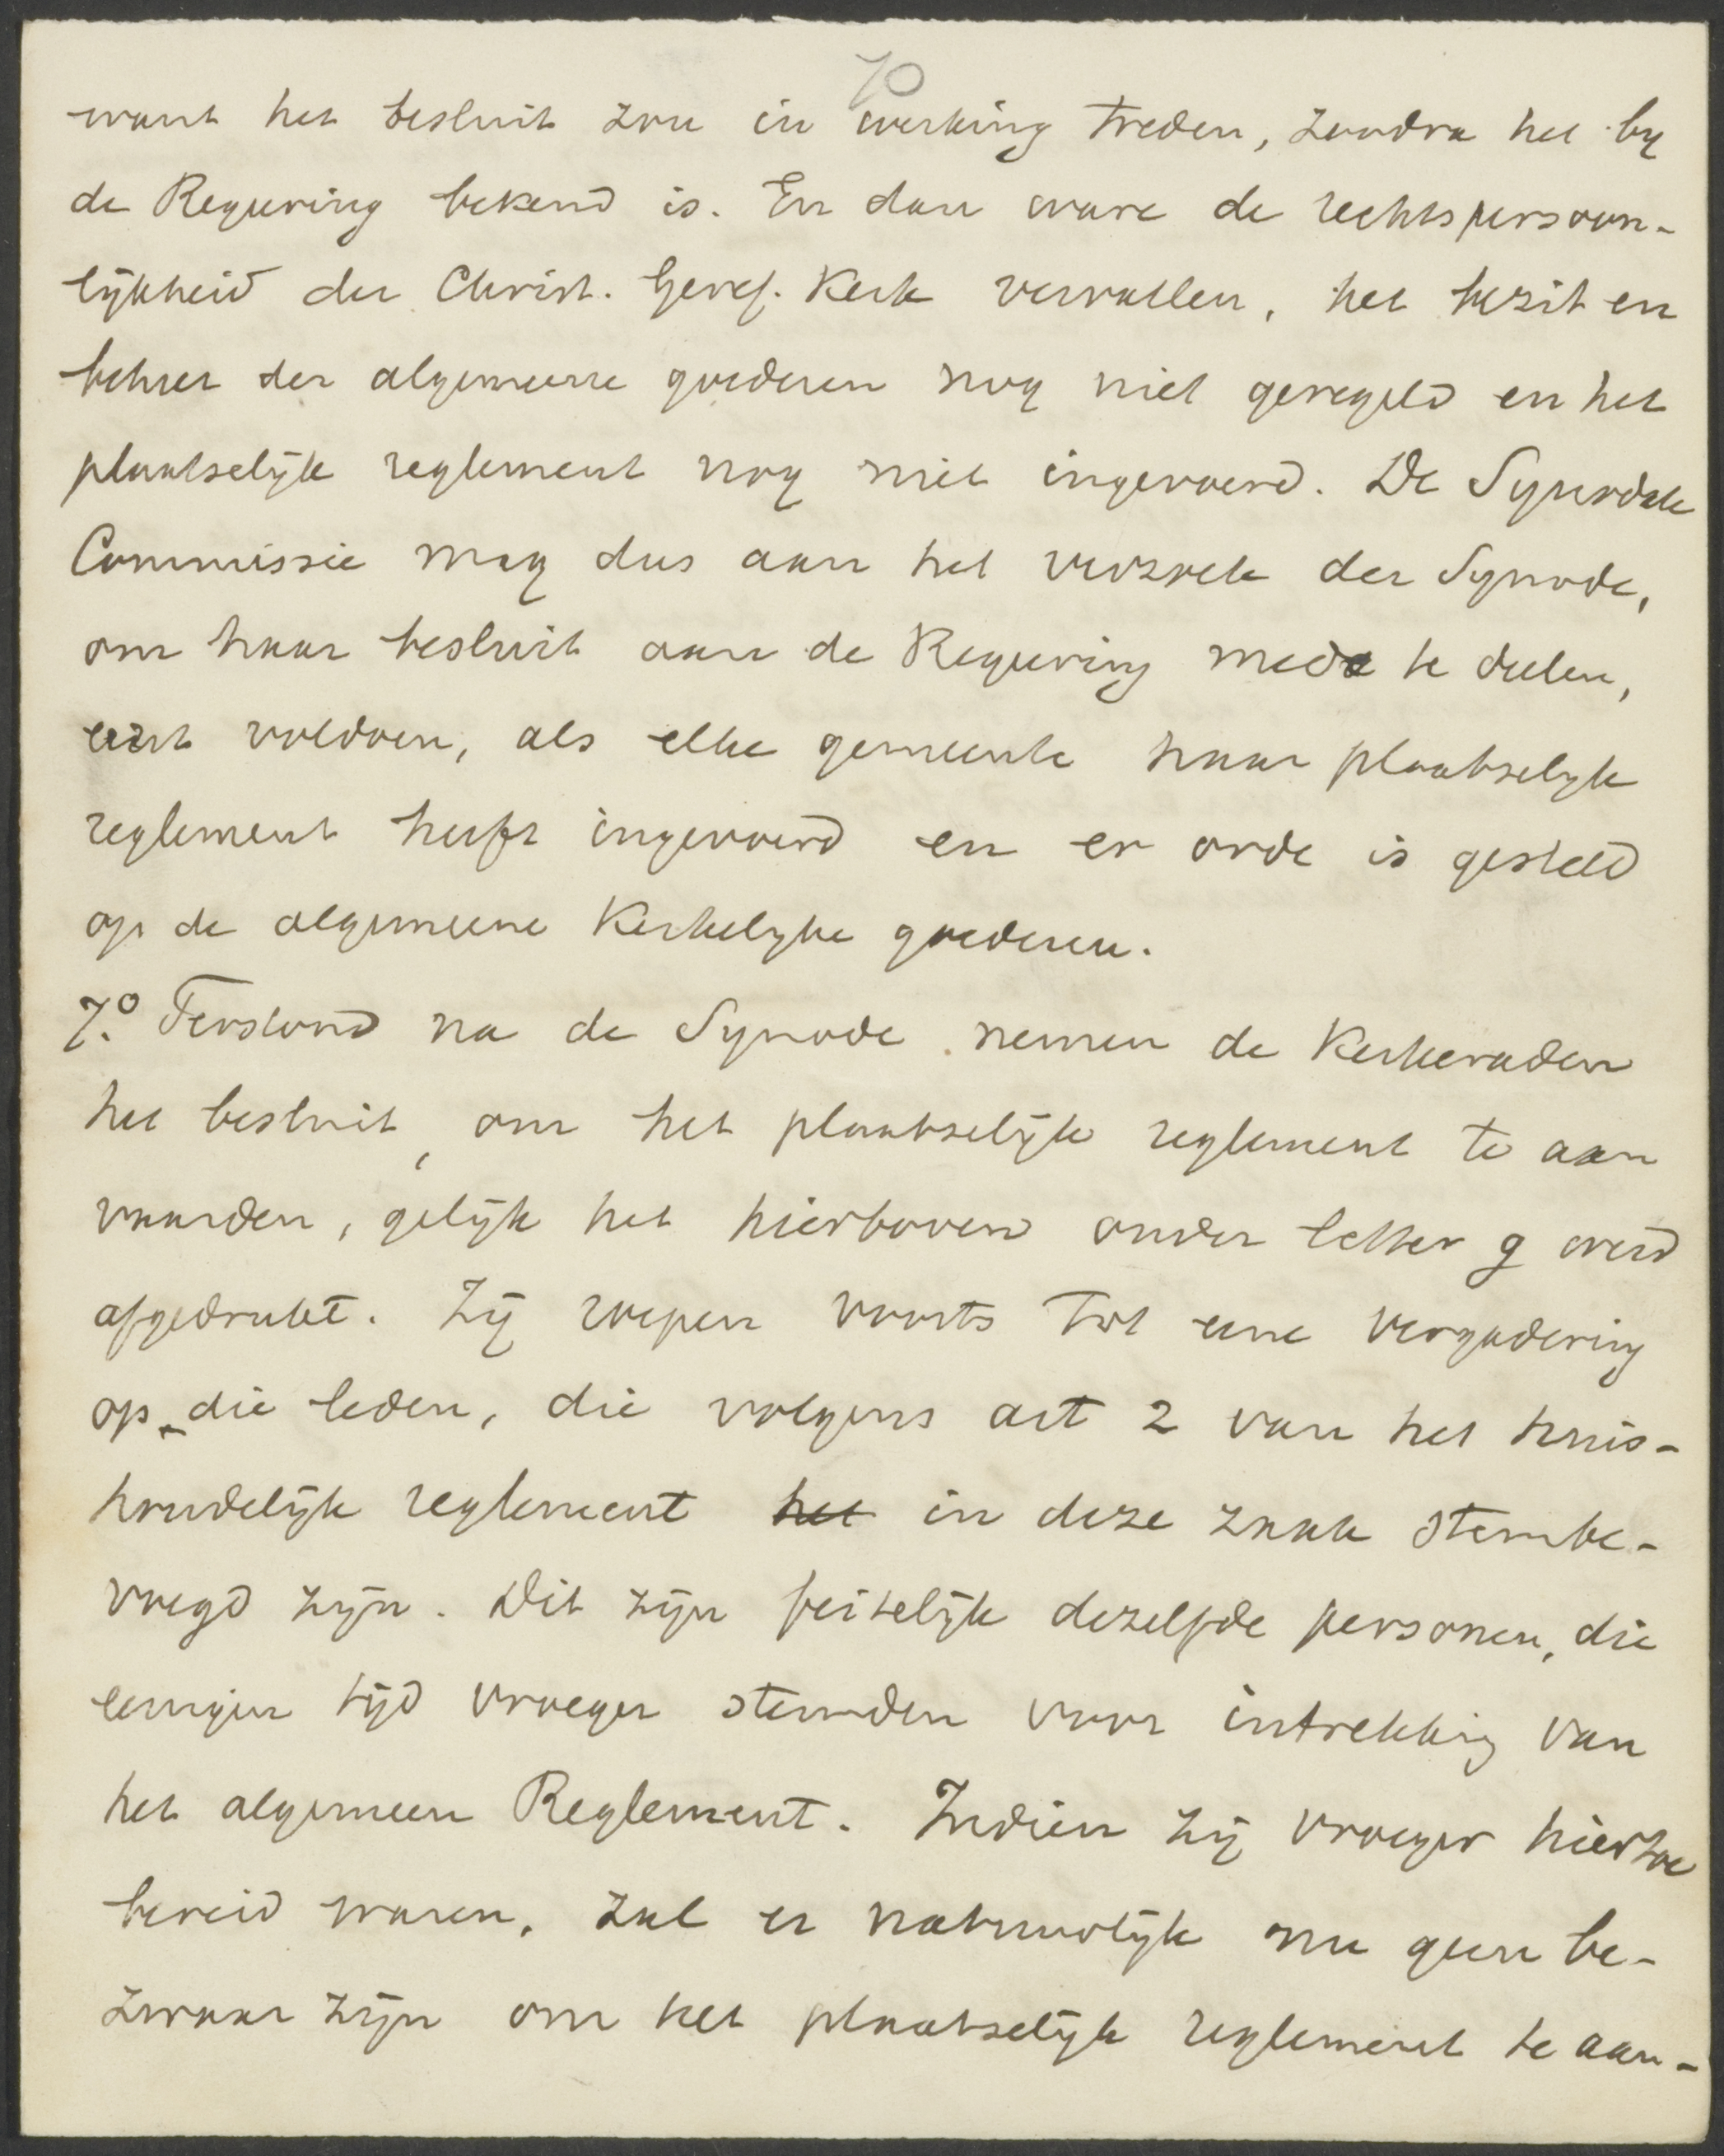 70
want het besluit zou in werking treden, zoodra het by
de Regeering bekend is. En dan ware de rechtspersoon-
lijkheid der Christ. Geref. Kerk vervallen, het bezit en
beheer der algemeene goederen nog niet geregeld en het
plaatselijk reglement nog niet ingevoerd. De Synodale
Commissie mag dus aan het verzoek der Synode,
om haar besluit aan de Regeering mede te deelen,
eerst voldoen, als elke gemeente haar plaatselyk
reglement heeft ingevoerd en er orde is gesteld
op de algemeene Kerkelyke goederen.
7.º Terstond na de Synode nemen de Kerkeraden
het besluit, om het plaatselijk reglement te aan
vaarden, gelijk het hierboven onder letter g werd
afgedrukt. Zij roepen voorts tot eene vergadering
op die leden, die volgens art 2 van het huis-
houdelijk reglement het in deze zaak stembe-
voegd zijn. Dit zijn feitelijk dezelfde personen, die
eenigen tijd vroeger stemden voor intrekking van
het algemeen Reglement. Indien zij vroeger hiertoe
bereid waren, zal er natuurlijk nu geen be-
zwaar zijn om het plaatselijk reglement te aan-